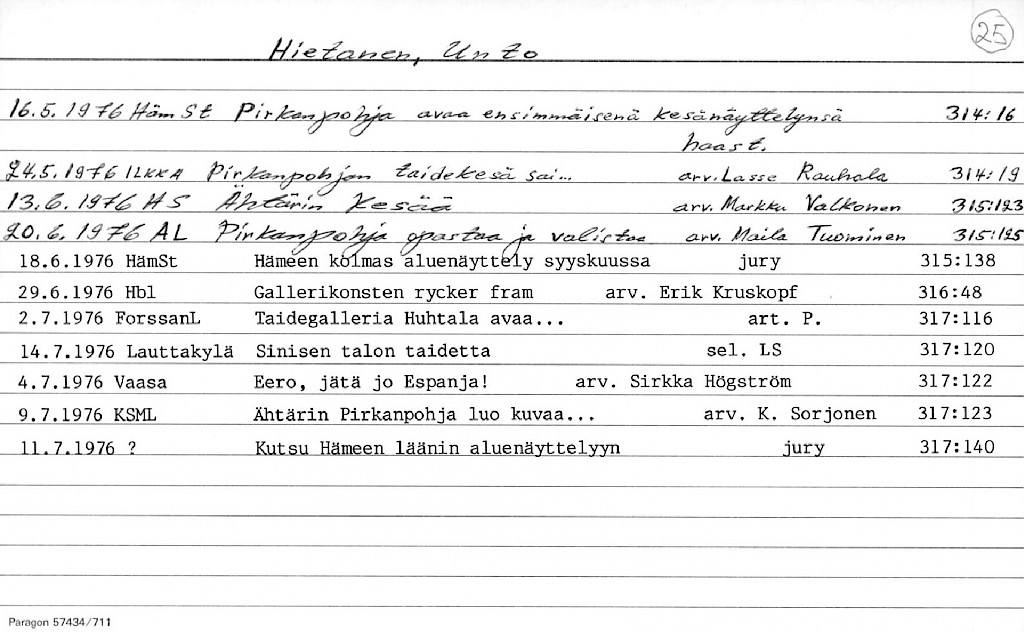 25
Hietanen, Unto
16.5.1976 Häm St Pirkanpohja avaa ensimmäisenä kesänäyttelynsä 314:16
haast.
24.5.1976 ILKKA Pirkanpohjan taidekesä sai... arv. Lasse Rauhala 314:19
13.6.1976 HS Ähtärin kesää arv. Markku Valkonen 315:123
20.6.1976 AL Pirkanpohja opastaa ja valistaa arv. Maila Tuominen 315:125
18.6.1976 HämSt Hämeen kolmas aluenäyttely syyskuussa jury 315:138
29.6.1976 Hbl Gallerikonsten rycker fram arv. Erik Kruskopf 316:48
2.7.1976 ForssanL Taidegalleria Huhtala avaa... art. P. 317:116
14.7.1976 Lauttakylä Sinisen talon taidetta sel. LS 317:120
4.7.1976 Vaasa Eero, jätä jo Espanja! arv. Sirkka Högström 317:122
9.7.1976 KSML Ähtärin Pirkanpohja luo kuvaa... arv. K. Sorjonen 317:123
11.7.1976 ? Kutsu Hämeen läänin aluenäyttelyyn jury 317:140
Paragon 57434/711